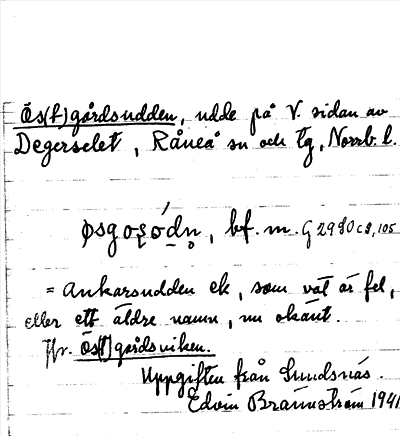 Ös(t)gårdsudden, udde på V. sidan av
Degerselet, Råneå sn och tg, Norrb. l.
øsgoʂódn̥, bf. m. G 2980 c 8, 105
= Ankarsudden ek, som vat är fel,
eller ett äldre namn, nu okänt.
Jfr. Ös(t)gårdsviken.
Uppgiften från Sundsnäs.
Edvin Brännström 1941